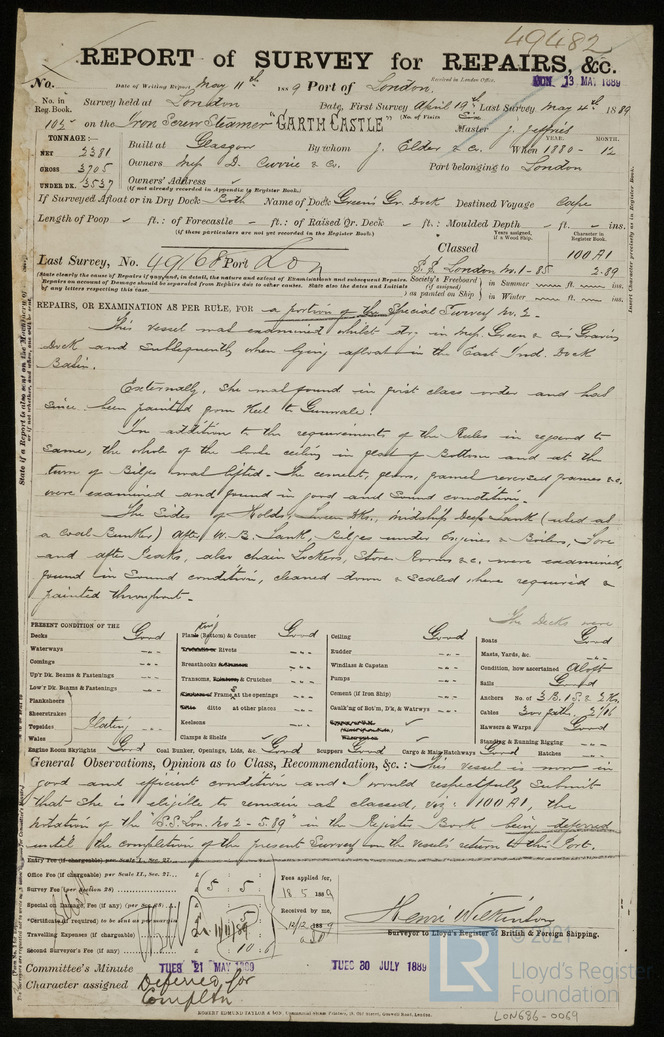 49482
REPORT of SURVEY for REPAIRS, &c.
No. Date of Writing Report May 11th 1889 Port of London. Received in London Office. MON 13 MAY 1889
No. in Reg. Book. Survey held at London Date, First Survey April 19th Last Survey May 4th 1889
on the Iron Screw Steamer "GARTH CASTLE" (No. of Visits Six Master J. Jeffries
TONNAGE:— YEAR. MONTH.
Built at Glasgow By whom J. Elder & Co. When 1880 - 12
NET 2381
GROSS 3705 Owners Messrs D. Currie & Co. Port belonging to London
UNDER DK. 3537 Owners' Address
(if not already recorded in Appendix to Register Book.)
If Surveyed Afloat or in Dry Dock Both Name of Dock Green's Gr. Dock Destined Voyage Cape
Length of Poop - ft.: of Forecastle - ft.: of Raised Qr. Deck - ft.: Moulded Depth - ft. - ins.
(if these particulars are not yet recorded in the Register Book.) Years assigned, if a Wood Ship. Character in Register Book.
Classed 100 A1
Last Survey, No. 49168 Port Lon S.S. London No. 1 - 85 2.89
(State clearly the cause of Repairs if any, and, in detail, the nature and extent of Examinations and subsequent Repairs. Society's Freeboard (if assigned) in Summer ft. ins.
Repairs on account of Damage should be separated from Repairs due to other causes. State also the dates and Initials
of any letters respecting this case. as painted on Ship in Winter ft. ins.
REPAIRS, OR EXAMINATION AS PER RULE, FOR a portion of the Special Survey No. 2.
This vessel was examined whilst dry in Messrs Green & Co's Graving
Dock and subsequently when lying afloat in the East Ind. Dock
Basin.
Externally, she was found in first class order and had
since been painted from Keel to Gunwale.
In addition to the requirements of the Rules in regard to
same, the whole of the hold ceiling in flat of Bottom and at the
turn of Bilges was lifted. The cement, floors, frames reversed frames &c.
were examined and found in good and sound condition.
The Sides of Holds, Tween Dks., midship Deep Tank (used as
a Coal Bunker) After W.B. Tank, Bilges under Engines & Boilers, Fore
and after Peaks, also chain Lockers, Store Rooms &c. were examined,
found in sound condition, cleaned down & scaled where required &
painted throughout.
The Decks were
PRESENT CONDITION OF THE
Decks Good
Waterways
Comings
Up'r Dk. Beams & Fastenings
Low'r Dk. Beams & Fastenings
Planksheers
Sheerstrakes
Topsides Plating
Wales
Engine Room Skylights Good
Plank (Bottom) & Counter Good
Treenails or Rivets
Breasthooks
Transoms, & Crutches
Frames at the openings
ditto at other places
Keelsons
Clamps & Shelfs
Coal Bunker, Openings, Lids, &c. Good
Ceiling Good
Rudder
Windlass & Capstan
Pumps
Cement (if Iron Ship)
Caulk'ng of Bot'm, D'k, & Watrwys
Scuppers Good
Boats Good
Masts, Yards, &c.
Condition, how ascertained Aloft
Sails Good
Anchors No. of 3 B. 1 S. & 2 K.
Cables 300 faths. 2 1/16
Hawsers & Warps Good
Standing & Running Rigging
Cargo & Main Hatchways Good Hatches
General Observations, Opinion as to Class, Recommendation, &c.: This vessel is now in
good and efficient condition and I would respectfully submit
that she is eligible to remain as classed, viz: 100 A1, the
notation of the "S.S. Lon. No 2 - 5.89" in the Register Book being deferred
until the completion of the present Survey on the vessel's return to this Port.
Entry Fee (if chargeable) per Scale I., Sec. 27
Office Fee (if chargeable) per Scale II., Sec. 27
Survey Fee (per Section 28) £ 5 : 5
Special or Damage Fee, if any (per Sec. 28)
*Certificate (if required) to be sent as per margin
Travelling Expenses (if chargeable)
Second Surveyor's Fee (if any) 10 : 6
Fees applied for,
18 5 1889
Received by me,
12/12 1889
Henri Wilkinson
Surveyor to Lloyd's Register of British & Foreign Shipping.
Committee's Minute TUES 21 MAY 1889 TUES 30 JULY 1889
Character assigned Deferred for
Completn
ROBERT EDMUND TAYLOR & SON
© 2021
LR
Lloyd's Register
Foundation
LON686-0069